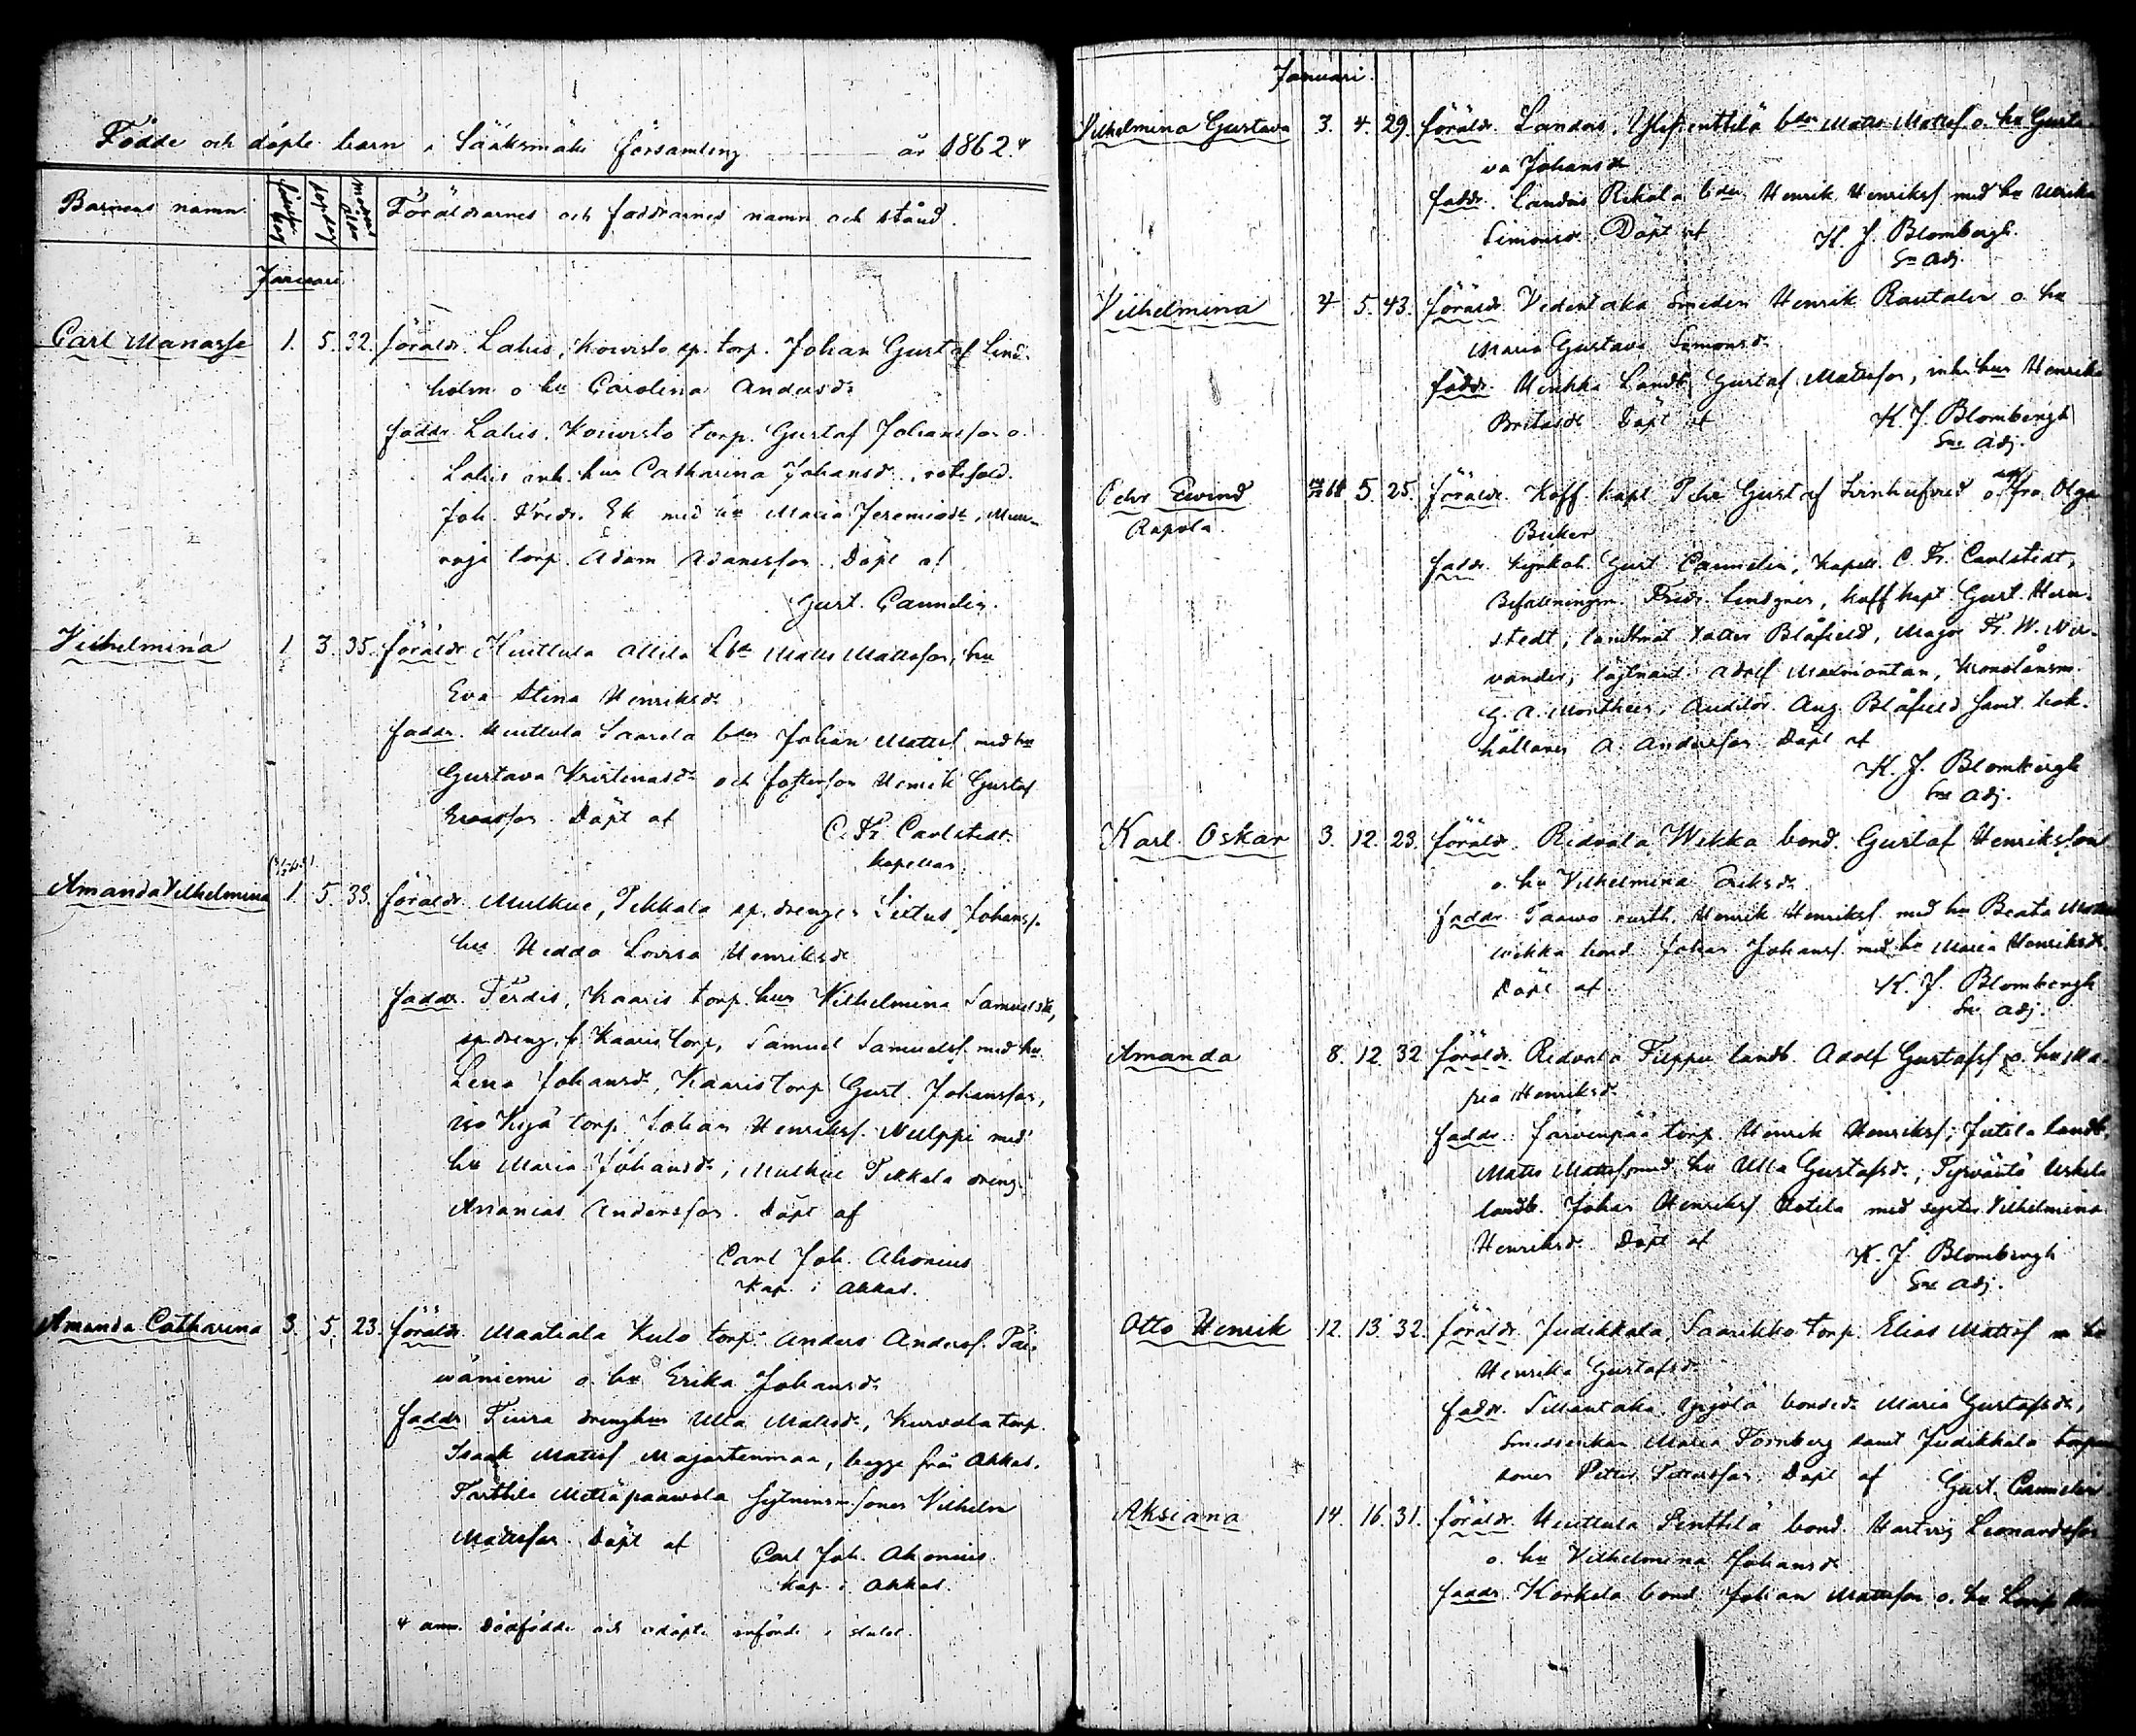 Födde och döpte barn i Sääksmäki församling år 1862.
Barnens namn. födelse dag dopdag modrens ålder Föräldrarnes och faddrarnes namn och stånd.
Januari
Carl Manasse 1. 5. 32. föräldr. Lahis, Koivisto sp. torp. Johan Gustaf Lind-
holm o hu Carolina Andersdr
faddr. Lahis, Koivisto torp. Gustaf Johansson o.
Lahis inh. hus Catharina Johansd.,
Joh. Fredr. Ek med hu Maria Jeremiasdr,
torp. Adam Adamsson. Döpt af
Gust. Cannelin.
Vilhelmina 1 3. 35. föräldr. Huittula Matts Mattsson, hu
Eva Stina Henriksdr
faddr. Huittula Saarela bdn Johan Mattsf. med hu
Gustava Kristinasdr och fosterson Henrik Gustaf
Ersson. Döpt af C. Fr. Carlstedt.
kapellan.
Amanda Vilhelmina 1. 5. 33. föräldr. Mulkue, Pekkala sp. drengen Sixtus Johansf.
hu Hedda Lovisa Henriksdr
faddr. Kaaris torp. hus Vilhelmina Samuelsdr,
sp. dreng. fr. Kaaris torp, Samuel Samuelsf. med hu
Lena Johansdr, Kaaris torp Gust. Johansson,
torp. Johan Henriksf. Nulppi med
hu Maria Johansdr, Mulkue Pekkala dreng
Ananias Andersson. Döpt af
Carl Joh. Ahonius
Kap. i Akkas.
Amanda Catharina 3. 5. 23. föräldr. Maatiala Kulo torp. Anders Andersf. Päi-
väniemi o. hu Erika Johansdr
faddr. drenghus Ulla Mattsdr, Kurvola torp.
Isaak Mattsf Majastenmaa, begge från Akkas.
Tarttila Metsäpaavola sytningsm. sonen Vilhelm
Mattsson. Döpt af Carl Joh. Ahonius.
Kap. i Akkas.
anm. Dödfödde och odöpte införde i slutet.
Januari.
Vilhelmina Gustava 3. 4. 29. föräldr. bdn Matts Mattsf o. hu Gusta-
va Johansdr
faddr. bdn Henrik Henriksf med hu Ulrika
Simonsd. Döpt af K. J. Blombergh.
Sn Adj.
Vilhelmina 4 5. 43. föräldr. Vedentaka smeden Henrik Rautalin o hu
Maria Gustava Simonsdr
faddr. Landb. Gustaf Mattsson, inh. hus Henrika
Britasdr Döpt af K. J. Blombergh
Sn Adj.
Pehr Eivind 5. 25. föräldr. Koff. kapt Pehr Gustaf Svinhufvud o. adl. fru Olga
Rapola. Becker
faddr. Kyrkoh. Gust. Cannelin, Kapell. C. Fr. Carlstedt,
Befallningsm. Fredr. Lindgren, koff kapt Gust. Hern-
stedt, landtmät. Blåfield, Major Fr. W. Ner-
vander, löjtnant Adolf Maxmontan, Kronolänsm.
G. A. Montheer, Auditör Aug. Blåfield samt bok-
hållaren A. Andersson. Döpt af
K. J. Blombergh
Sn Adj.
Karl Oskar 3. 12. 23. föräldr. Ridvala Wikka bond. Gustaf Henriksson
o. hu Vilhelmina Eriksdr
faddr. Henrik Henriksf. med hu Beata
Wikka bond. Johan Johansf. med hu Maria Henriksdr
Döpt af K. J. Blombergh
Sn Adj.
Amanda 8. 12. 32 föräldr. Ridvala Filppu landb. Adolf Gustafsf o. hu Ma-
ria Henriksdr
faddr. Järvenpää torp. Henrik Henriksf, Jutila landb.
Matts Mattsf med hu Ulla Gustafsdr,
landb. Johan Henriksf med syster Vilhelmina
Henriksd. Döpt af K. J. Blombergh
Sn Adj.
Otto Henrik 12. 13. 32. föräldr. Judikkala, Saarikko torp. Elias Mattsf o hu
Henrika Gustafsdr
faddr. Yrjölä Maria Gustafsdr,
Smedsenkan Maria Törnberg samt Judikkala torpare
sonen Petter Pettersson. Döpt af Gust. Cannelin
Aksiana 14. 16. 31. föräldr. Huittula Penttilä bond. Hartvig Leonardsson
o. hu Vilhelmina Johansdr
faddr. Korkela bond Johan Mattsson o. hu